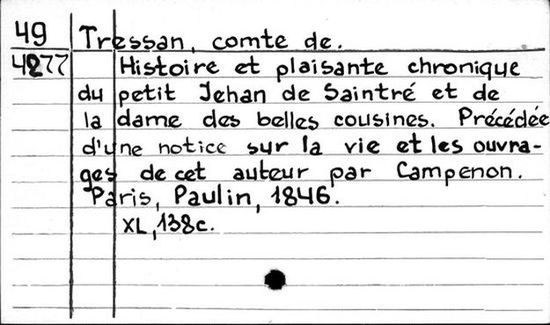 49 Tressan, comte de.
4277 Histoire et plaisante chronique
du petit Jehan de Saintré et de
la dame des belles cousines. Précédée
d'une notice sur la vie et les ouvra-
ges de cet auteur par Campenon.
Paris, Paulin, 1846.
XL, 138c.